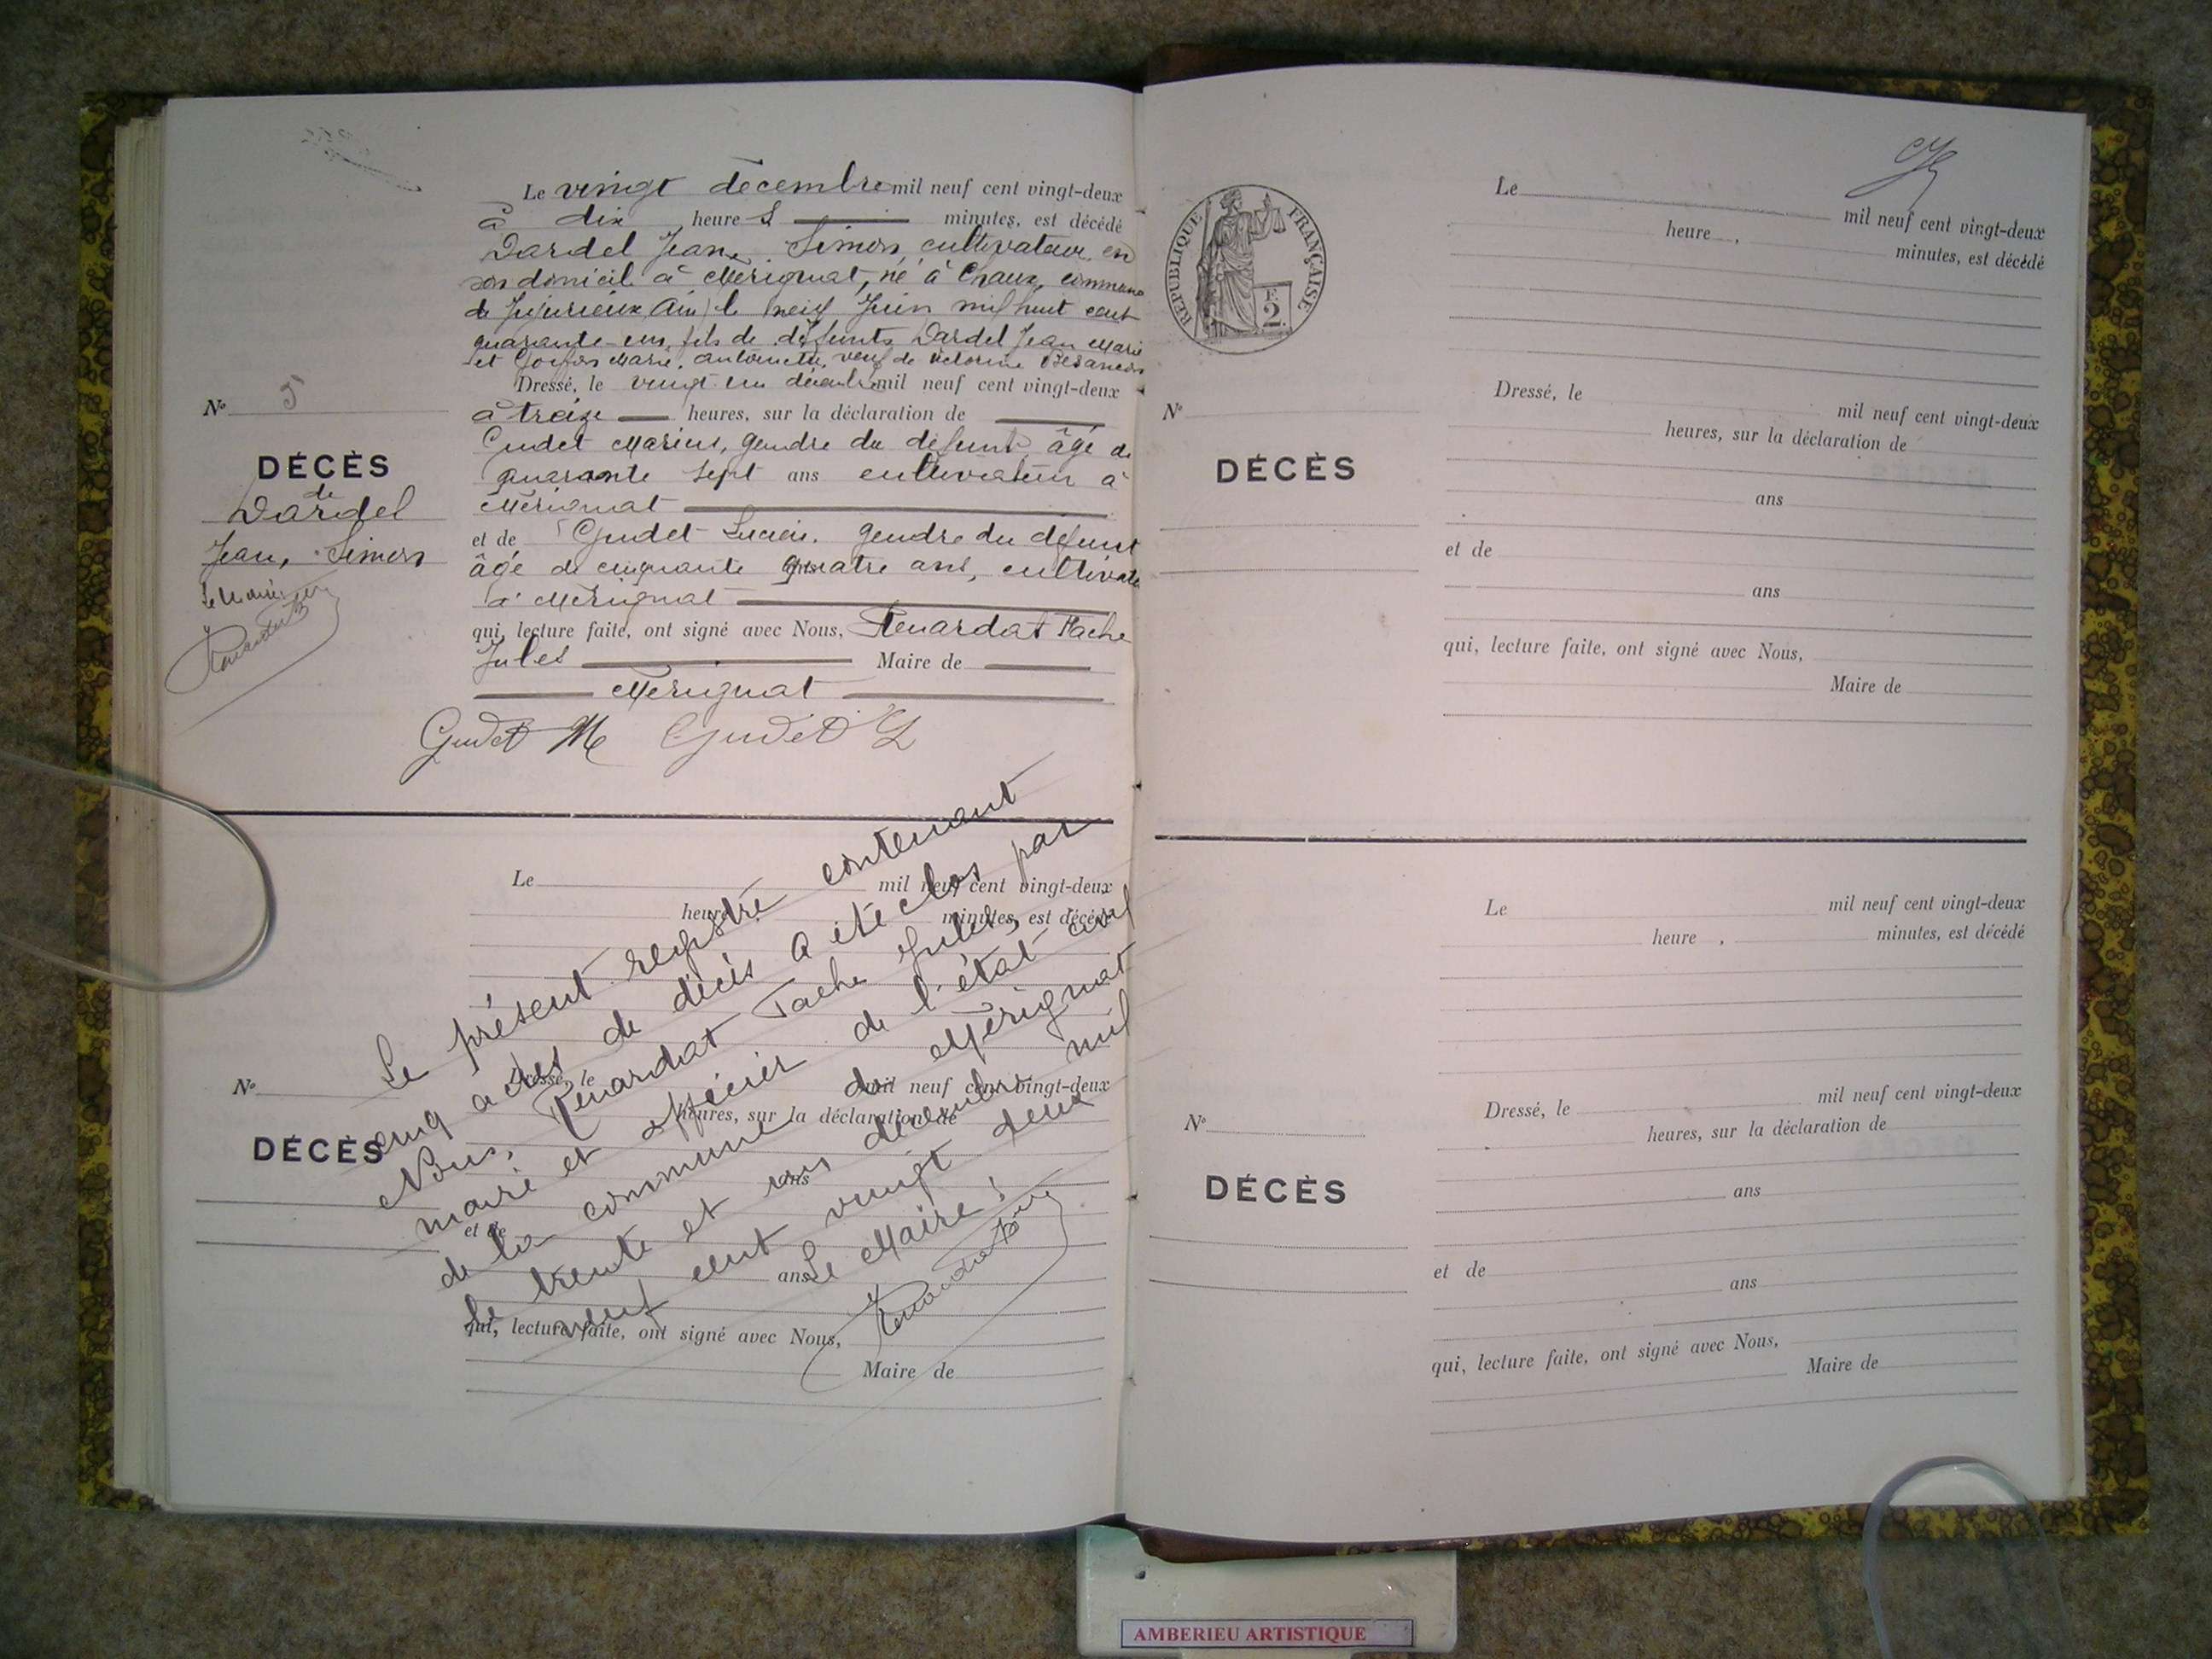 Le vingt décembre mil neuf cent vingt-deux
à dix heures minutes, est décédé
Dardel Jean, Simon, cultivateur, en
son domicil à Mérignat, né à Chaux, commune
de Jujurieux (Ain) le neuf Juin mil huit cent
quarante-un, fils de défunts Dardel Jean Marie
et Marie, antoinette, veuf de Victorine Besançon
Dressé, le vingt un décembre mil neuf cent vingt-deux
à treize heures, sur la déclaration de
Gudet Marius, gendre du défunt, âgé de
quarante sept ans cultivateur à
Mérignat
et de Gudet Lucien, gendre du défunt
âgé de cinquante quatre ans, cultivate
à Mérignat
qui, lecture faite, ont signé avec Nous, Renardat Fache
Jules Maire de
Mérignat
Gudet M Gudet L
No 5
DÉCÈS
de
Dardel
Jean, Simon
Le Maire
Le mil neuf cent vingt-deux
heure , minutes, est décédé
No
Dressé, le mil neuf cent vingt-deux
heures, sur la déclaration de
DÉCÈS
ans
et de
ans
qui, lecture faite, ont signé avec Nous,
Maire de
Le présent registre contenant
cinq actes de décès a été clos par
Nous, Renardat Fache Jules,
maire et officier de l'état civil
de la commune de Mérignat
Le trente et un décembre mil
neuf cent vingt deux
Le Maire
RÉPUBLIQUE FRANÇAISE
F.
2.
Le mil neuf cent vingt-deux
heure , minutes, est décédé
Dressé, le mil neuf cent vingt-deux
No heures, sur la déclaration de
DÉCÈS
ans
et de
ans
qui, lecture faite, ont signé avec Nous,
Maire de
Le mil neuf cent vingt-deux
heure , minutes, est décédé
Dressé, le mil neuf cent vingt-deux
No heures, sur la déclaration de
DÉCÈS
ans
et de
ans
qui, lecture faite, ont signé avec Nous,
Maire de
AMBERIEU ARTISTIQUE